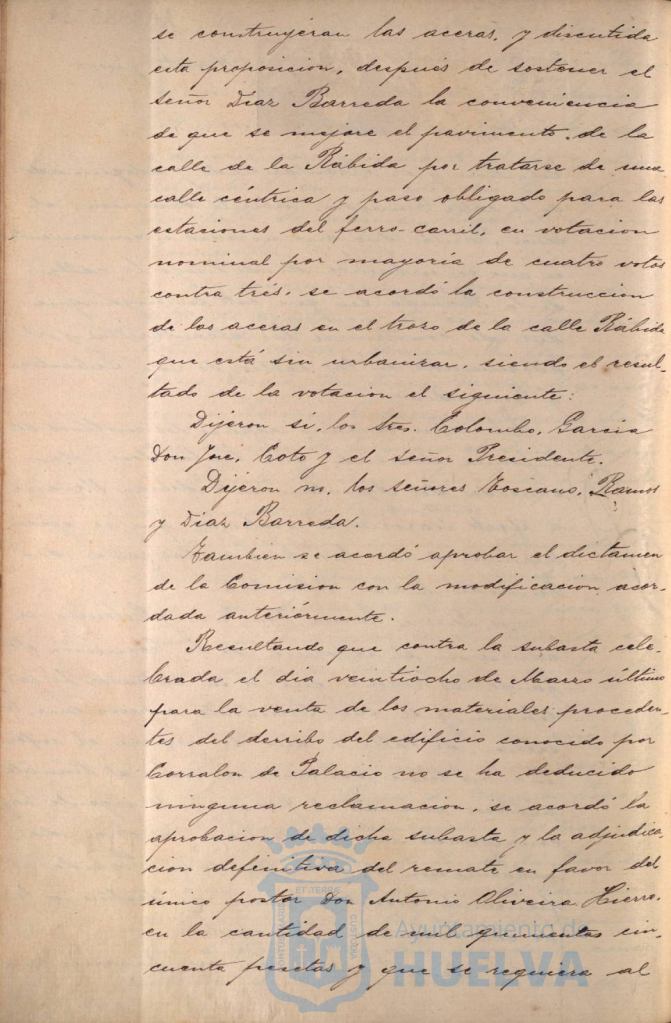 se construyeran las aceras, y discutida
esta proposicion, después de sostener el
señor Diaz Barreda la conveniencia
de que se mejore el pavimento de la
calle de la Rábida por tratarse de una
calle céntrica y paso obligado para las
estaciones del ferro-carril, en votacion
nominal por mayoría de cuatro votos
contra trés, se acordó la construccion
de las aceras en el trozo de la calle Rábida
que está sin urbanizar, siendo el resul-
tado de la votacion el siguiente:
Dijeron si, los sres. Colombo, Garcia
Don José, Coto y el señor Presidente.
Dijeron no, los señores Toscano, Ramos
y Diaz Barreda.
Tambien se acordó aprobar el dictamen
de la Comision con la modificacion acor-
dada anteriórmente.
Resultando que contra la subasta cele-
brada el dia veintiocho de Marzo último
para la venta de los materiales proceden-
tes del derribo del edificio conocido por
Corralon de Palacio no se ha deducido
ninguna reclamación, se acordó la
aprobacion de dicha subasta y la adjudica-
cion definitiva del remate en favor del
único postor Don Antonio Oliveira Hierro,
en la cantidad de mil quinientas cin-
cuenta pesetas y que se requiera al
Ayuntamiento de
HUELVA